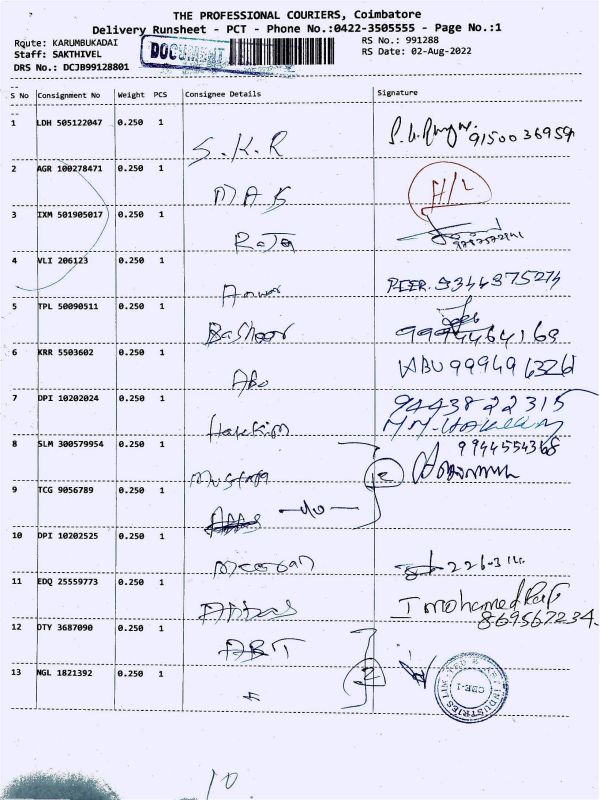 THE PROFESSIONAL COURIERS, Coimbatore
Delivery Runsheet - PCT - Phone No.:0422-3505555 - Page No.:1
Route: KARUMBUKADAI RS No.: 991288
Staff: SAKTHIVEL DOCUMENT RS Date: 02-Aug-2022
DRS No.: DCJB99128801
S No Consignment No Weight PCS Consignee Details Signature
1 LDH 505122047 0.250 1 S.K.R 9150036959
2 AGR 100278471 0.250 1 H/L
3 IXM 501905017 0.250 1 Raja
4 VLI 206123 0.250 1 Anwar PEER. 9344975274
5 TPL 50090511 0.250 1 Basheer 9994464169
6 KRR 5503602 0.250 1 Abu ABU
7 DPI 10202024 0.250 1 Hakkim 9443822315
M.M.HAKKIM
8 SLM 300579954 0.250 1 Mustafa 2 9944554368
9 TCG 9056789 0.250 1
10 DPI 10202525 0.250 1 Meeran
11 EDQ 25559773 0.250 1 Abbas I mohamed Rafi
869567234.
12 DTY 3687090 0.250 1 ABT 2
13 NGL 1821392 0.250 1
CBE-1
10